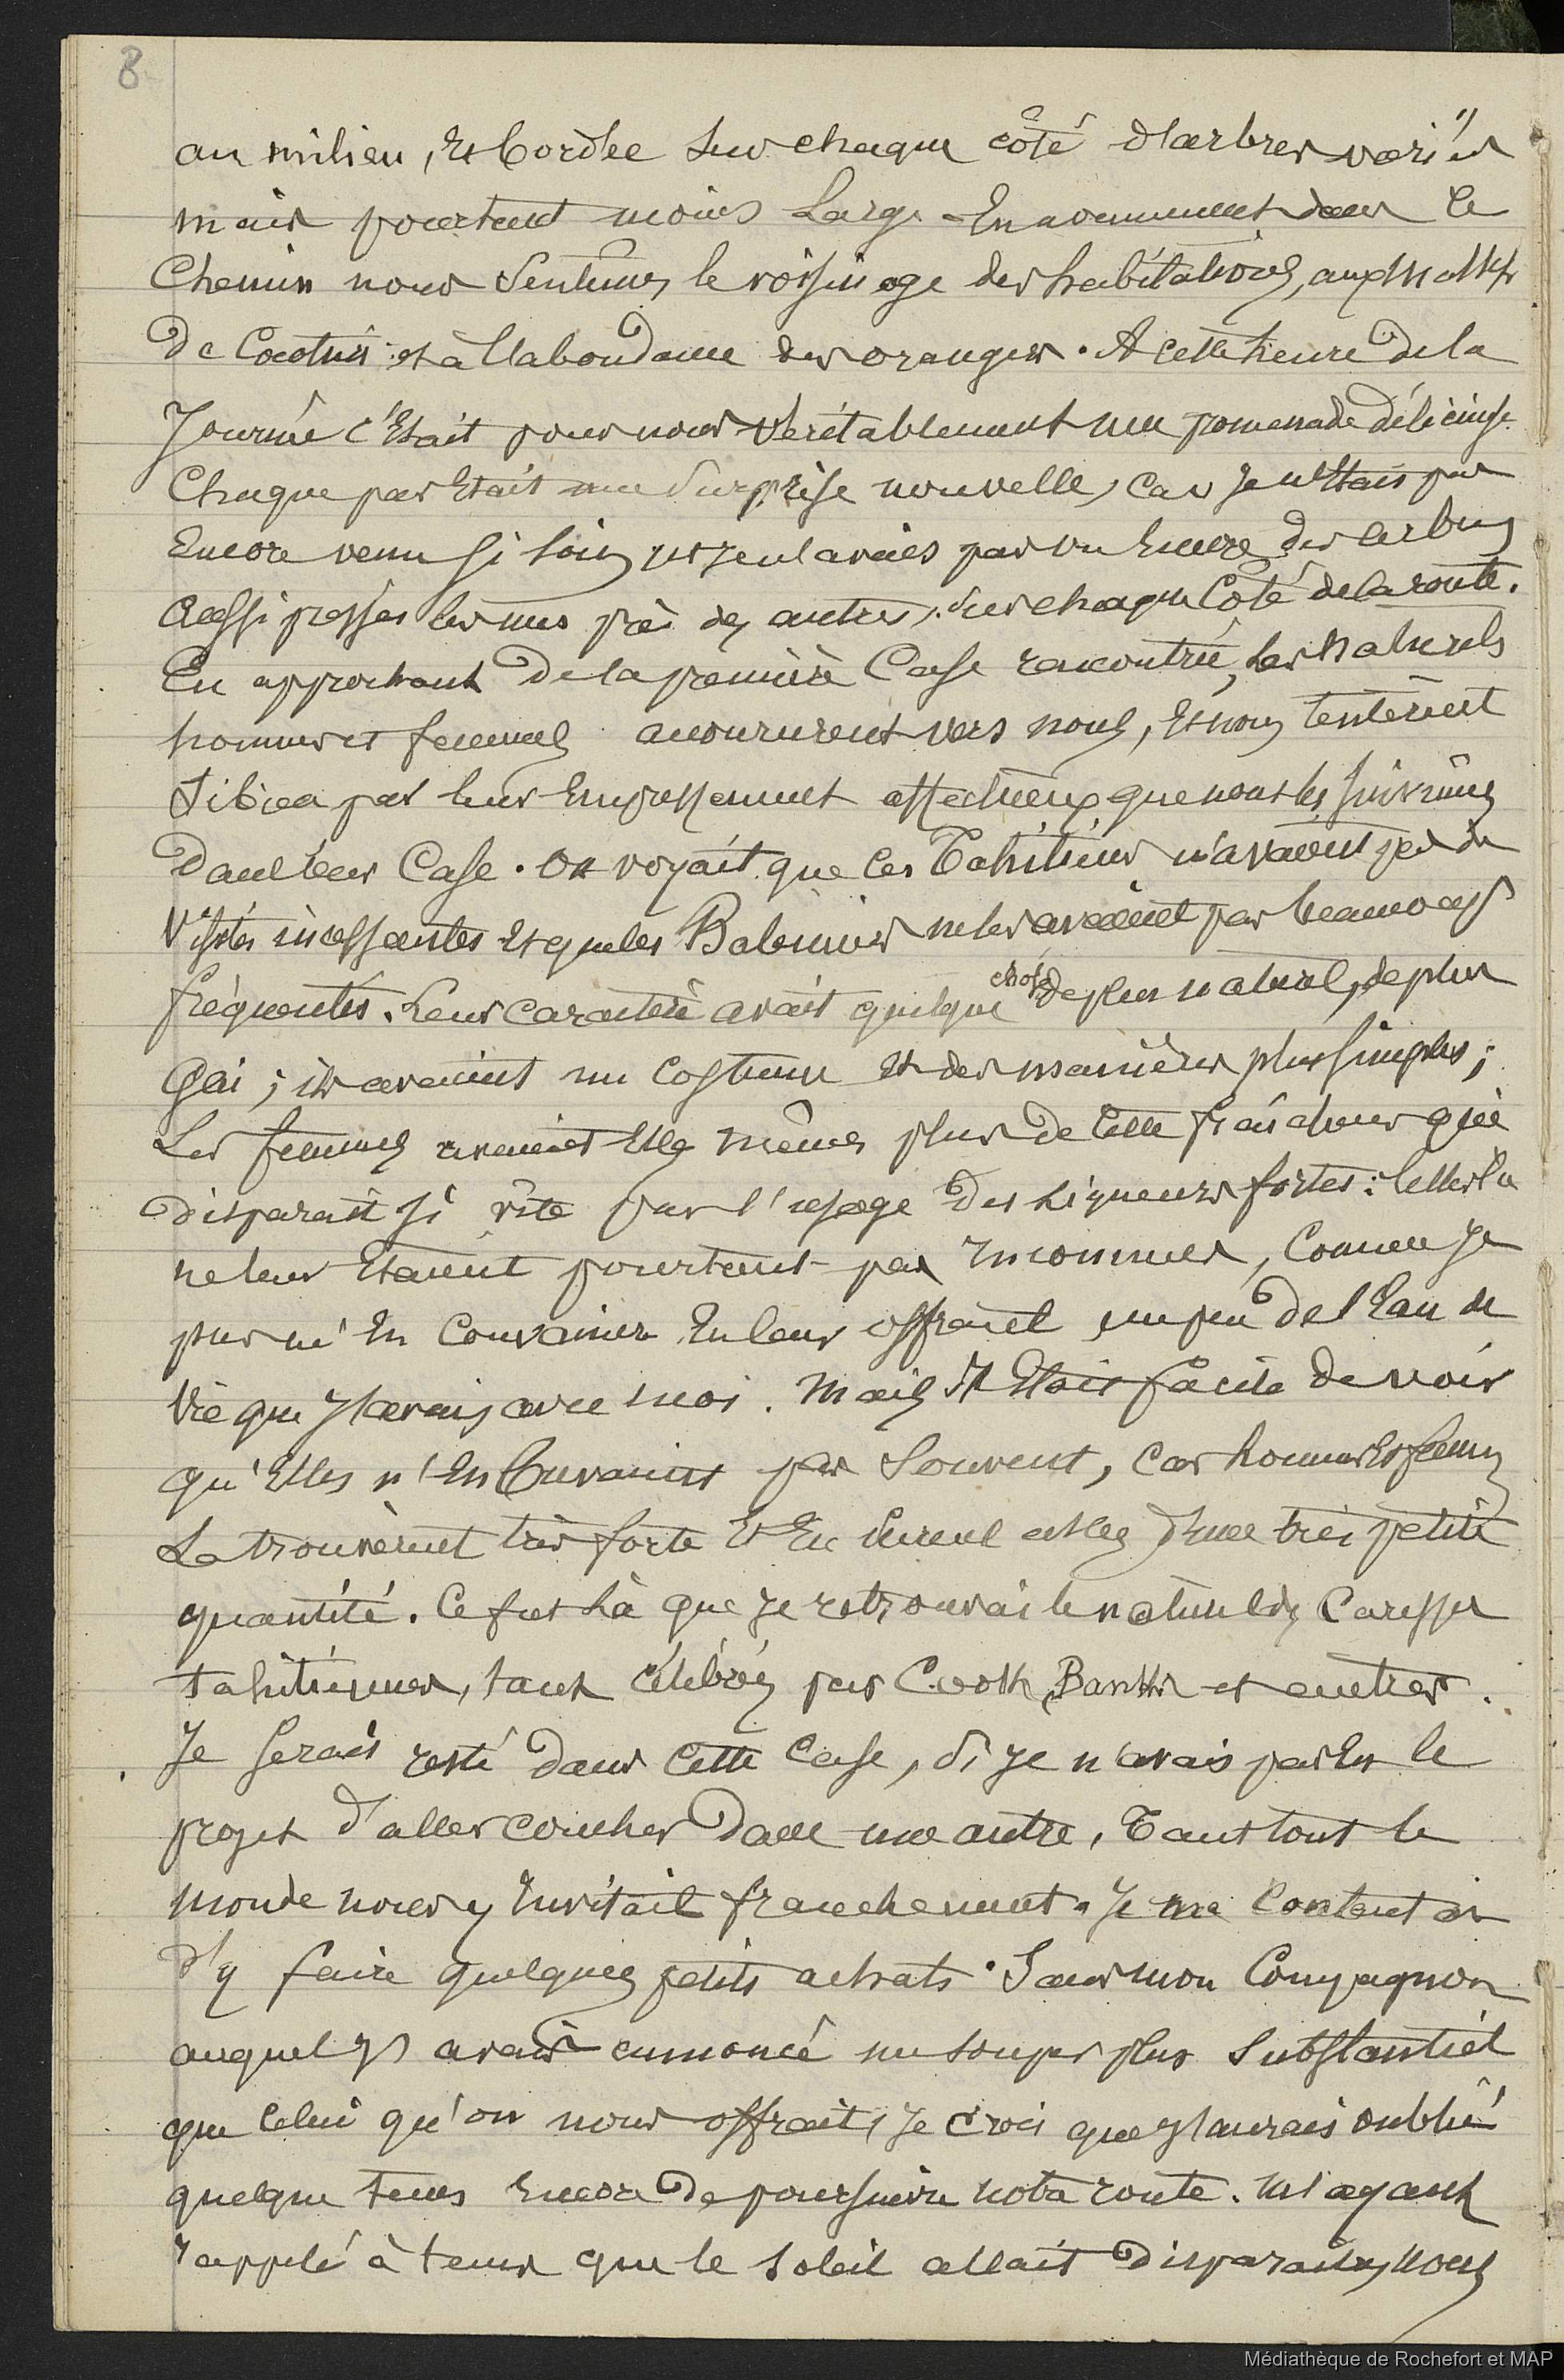 8
au milieu, et bordée sur chaque côté d'arbres variés
mais pourtant moins large. En avançant dans le
Chemin nous sentimes le voisinage des habitations, aux
de Cocotiers et à l'abondance des oranges. A cette heure de la
Journée c'était pour nous véritablement une promenade délicieuse.
Chaque pas était une surprise nouvelle, car je n'étais pas
Encore venu si loin, et je n'avais pas vu Encore des arbres
aussi pressés les uns près des autres, sur chaque Côté de la route.
En approchant de la première Case rencontrée, les Naturels
hommes et femmes accoururent vers nous, et nous tentèrent
si bien par leur Empressement affectueux que nous les suivimes
dans leur Case. On voyait que les Tahitiens n'avaient pas de
Visites incessantes et que les Baleiniers ne les avaient pas beaucoup
fréquentés. Leur caractère avait quelque chose de plus naturel, de plus
Gai ; ils avaient un Costume et des manières plus simples ;
Les femmes avaient elles mêmes plus de cette fraicheur qui
disparait si vite par l'usage des liqueurs fortes : celles ci
ne leur étaient pourtant pas Inconnues, Comme je
pus m'en Convaincre En leur offrant un peu de l'Eau de
Vie que j'avais avec moi. Mais Il était facile de voir
qu'Elles n'En buvaient pas Souvent, car hommes et femmes
La trouvèrent très forte et En burent assez d'une très petite
quantité. Ce fut là que je retrouvai le naturel des Caresses
tahitiennes, tant célébrées par Cook, Banks et autres.
Je serais resté dans Cette Case, si je n'avais pas eu le
projet d'aller coucher dans une autre, Tant tout le
monde nous y Invitait franchement. Je me Contentai
d'y faire quelques petits achats. Sans mon Compagnon
auquel j'avais annoncé un souper plus substantiel
que Celui qu'on nous offrait, je crois que j'aurais oublié
quelque tems Encore de poursuivre notre route. M'ayant
rappelé à tems que le Soleil allait disparaitre, nous
Médiathèque de Rochefort et MAP